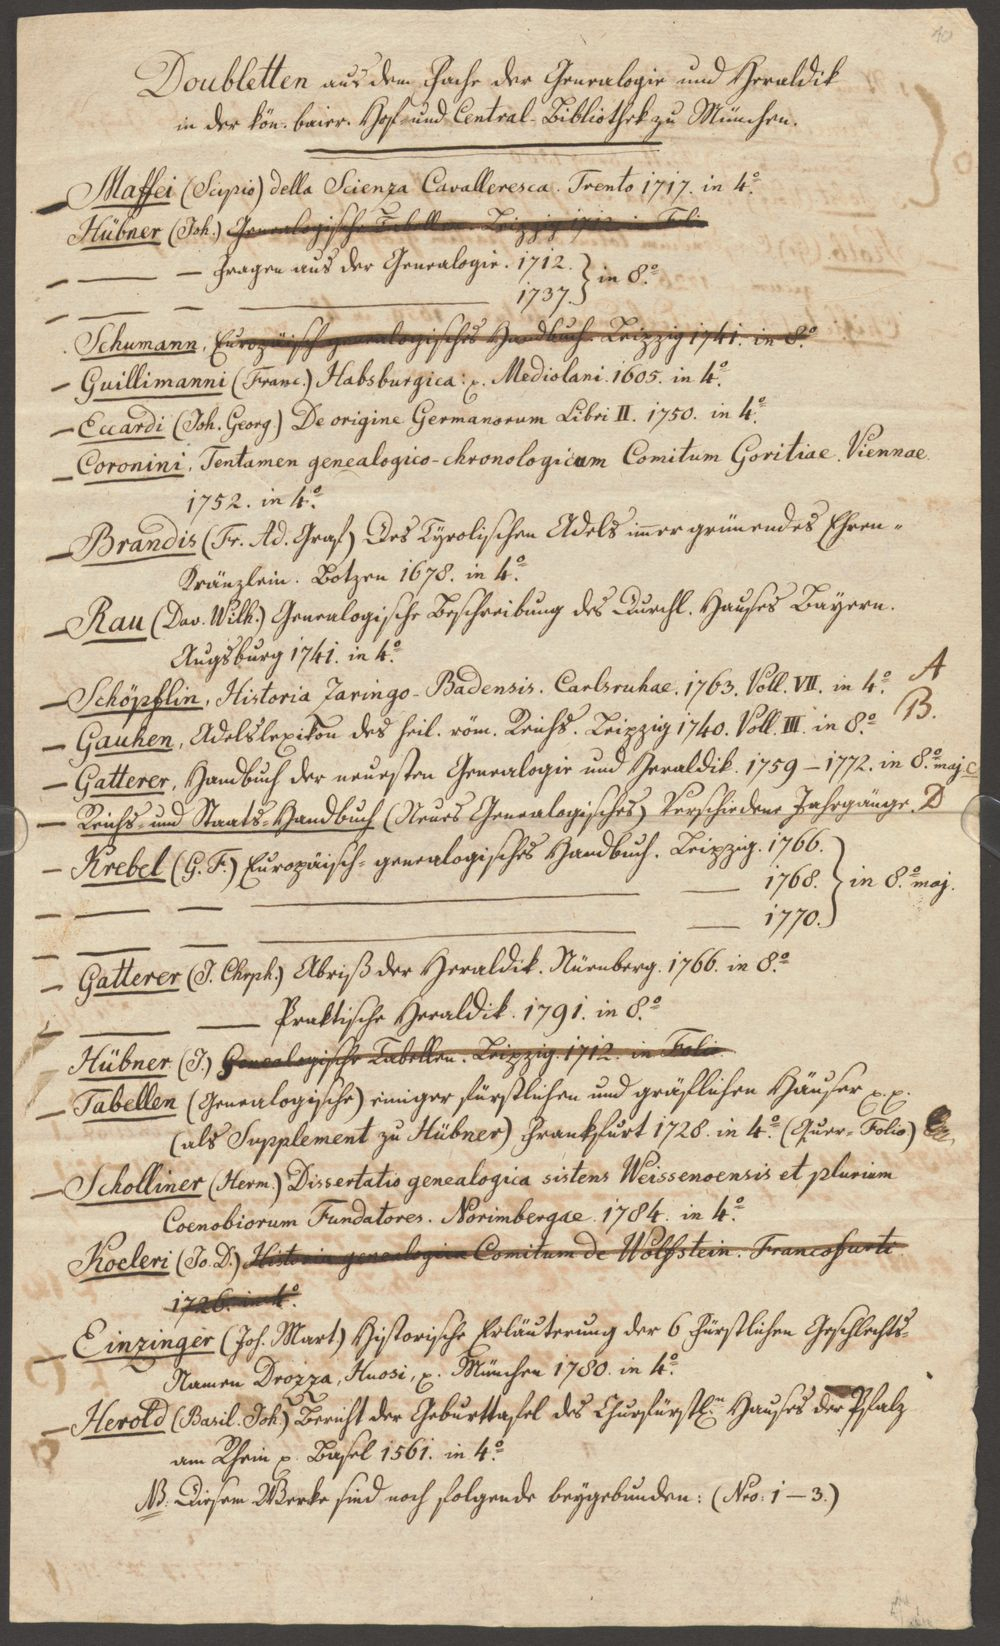 40
Doubletten aus dem Fache der Genealogie und Heraldik
in der kön. baier. Hof- und Central-Bibliothek zu München.
Maffei (Scipio) della Scienza Cavalleresca. Trento 1717. in 4.º
Hübner (Joh.) Genealogische Tabellen. Leipzig 1712. in Folio
— — Fragen aus der Genealogie. 1712. } in 8.º
— — — 1737. }
Schumann, Europäisch genealogisches Handbuch. Leipzig 1741. in 8.º
— Guillimanni (Franc.) Habsburgica: p. Mediolani. 1605. in 4.º
— Eccardi (Joh. Georg) De origine Germanorum Libri II. 1750. in 4.º
— Coronini, Tentamen genealogico-chronologicum Comitum Goritiae. Viennae.
1752. in 4.º
— Brandis (Fr. Ad. Graf) Des Tyrolischen Adels immer grünendes Ehren-
Kränzlein. Botzen 1678. in 4.º
— Rau (Dav. Wilh.) Genealogische Beschreibung des Durchl. Hauses Bayern.
Augsburg 1741. in 4.º
— Schöpflin, Historia Zaringo-Badensis. Carlsruhae. 1763. Voll. VII. in 4.º A
— Gauhen, Adelslexikon des heil. röm. Reichs. Leipzig 1740. Voll. III. in 8.º B.
— Gatterer, Handbuch der neuesten Genealogie und Heraldik. 1759–1772. in 8.º maj. C
— Reichs- und Staats-Handbuch (Neues Genealogisches) Verschiedene Jahrgänge. D
— Krebel (G. F.) Europäisch-genealogisches Handbuch. Leipzig. 1766. }
— — — — 1768. } in 8.º maj.
— — — — 1770. }
— Gatterer (J. Chrph.) Abriß der Heraldik. Nürnberg. 1766. in 8.º
— — — Praktische Heraldik. 1791. in 8.º
Hübner (J.) Genealogische Tabellen. Leipzig. 1712. in Folio
— Tabellen (Genealogische) einiger fürstlichen und gräflichen Häuser p. p.
(als Supplement zu Hübner) Frankfurt 1728. in 4.º (Quer-Folio)
— Scholliner (Herm.) Dissertatio genealogica sistens Weissenoensis et plurium
Coenobiorum Fundatores. Norimbergae. 1784. in 4.º
Koeleri (Jo. D.) Historia genealogica Comitum de Wolfstein. Francofurti
1726. in 4.º
— Einzinger (Joh. Mart.) Historische Erläuterung der 6 Fürstlichen Geschlechts-
Namen Drozza, Huosi, p. München 1780. in 4.º
— Herold (Basil. Joh.) Bericht der Geburttafel des Churfürstl.n Hauses der Pfalz
am Rhein p. Basel 1561. in 4.º
NB. Diesem Werke sind noch folgende beygebunden: (Nro: 1–3.)